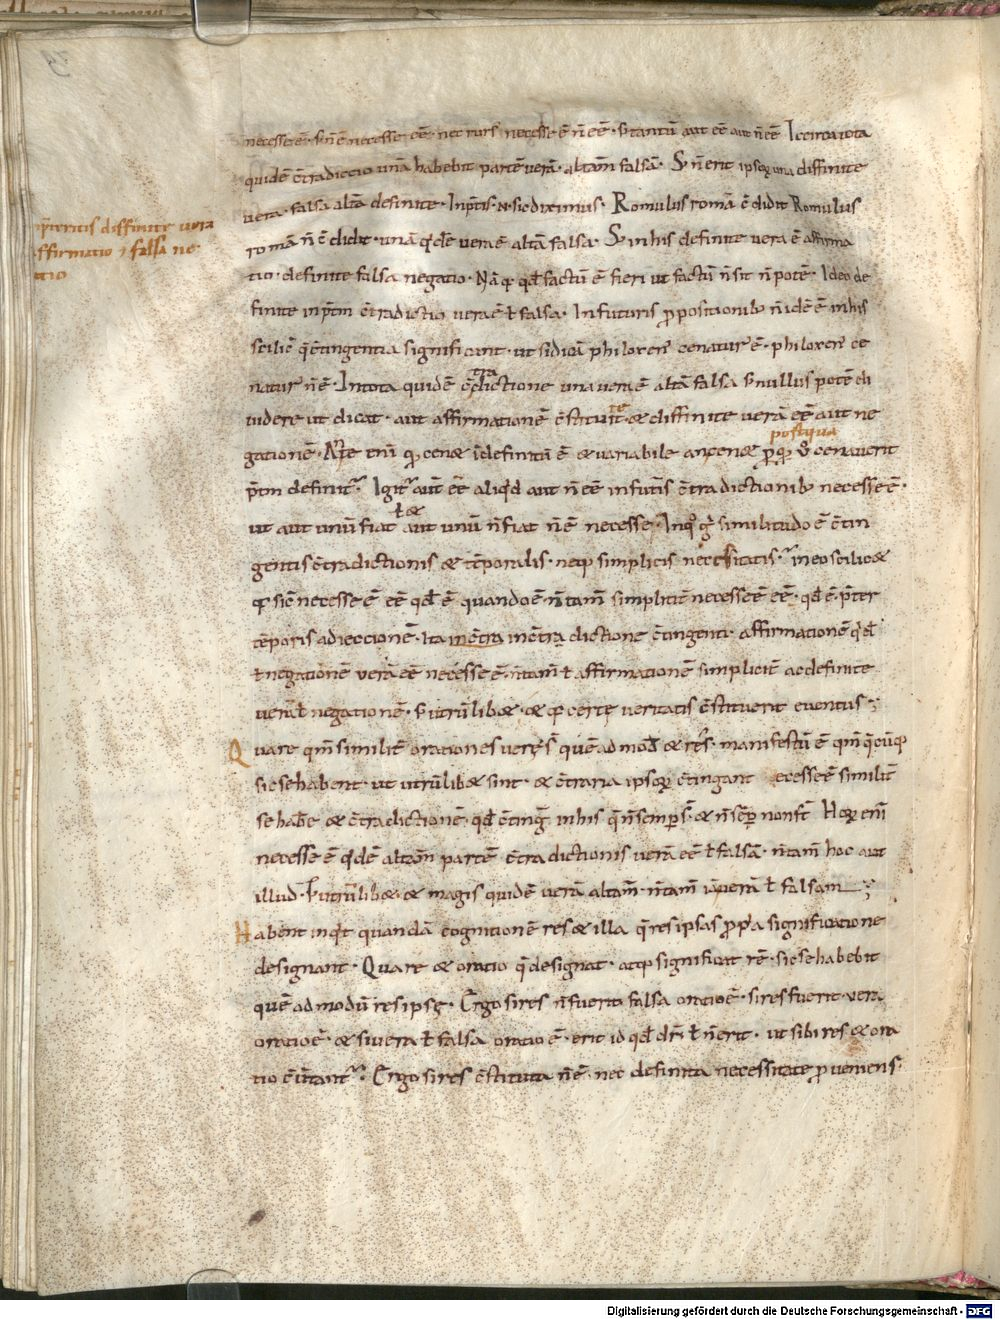 necesse ē · s; n̄ ē necesse eē nec rurs necesse ē n̄ eē · s; tantū aut eē aut n̄ eē I circa tota
quidē c̄tradiccio unā habebit partē verā · altam̄ falsā · S; n̄ erit ipsaꝝ una diffinite
vera · falsa alta definite · In p̄tis · N · sic diximus · Romulus romā c̄didit Romulus
romā n̄ c̄didit · unā qdē vera ē alta falsa · S; in his definite vera ē affirma
tio · definite falsa negatio · Nā qꝫ qd factū ē fieri ut factū n̄ sit n̄ potē · Ideo de
finite in p̄tm c̄tradictio vera ē ł falsa · In futuris ꝓpositionibꝫ n̄ idē ē in his
scilic̄ q̄ c̄tingentia significant · ut si dicā philoxen̄ cenatur ē · philoxen̄ ce
natur n̄ ē · In tota quidē c̄tradictione una vera ē alta falsa s; nullus potē di
videre ut dicat · aut affirmationē c̄stituit & diffinite verā eē aut ne
postqua
gationē · Ante eni qꝫ cen& idefinitū ē & variabile an cen& ꝑqꝫ v̊ cenaverit
p̄tm definit · Igit aut eē aliqd aut n̄ eē in futis c̄tradictionibꝫ necesse ē ·
ł &
ut aut unū fiat aut unū n̄ fiat n̄ ē necesse · In qo g similitudo ē c̄tin
gentis c̄tradictionis & tēporalis · neqꝫ simplicis necessitatis in eo scilic&
qꝫ sic̄ necesse ē eē qd ē quando ē · n̄ tam̄ simplicit̄ necesse ē eē · qd ē p̄ter
tēporis adieccionē · Ita in c̄tra in c̄tra dictione c̄tingenti affirmationē qd
ł negationē verā eē necesse ē · n̄ tam̄ ł affirmationē simplicit̄ ac definite
verā ł negationē · s; utrū lib& · & qꝫ certe veritatis c̄stituerit eventus ;
Quare qm̄ similit̄ orationes verę s̄ quē ad modū & res · manifestū ē qm̄ q̄cūqꝫ
sic se habent · ut utrū lib& sint · & c̄traria ipsoꝝ c̄tingant ecesse ē similit̄
se habe & c̄tradictionē · qd c̄ting in his q̄ n̄ semp s̄ · & n̄ semp non s̄ Hoꝝ eni
necesse ē qdē alteram̄ partē c̄tradictionis verā eē ł falsā · n̄ tam̄ hoc aut
illud · s; utrū lib& · & magis quidē verā altam̄ · n̄ tam̄ iā verā ł falsam ;
Habent inqt quandā cognitionē res & illa q̄ res ipsas ꝓpa significatione
designant · Quare & oratio q̄ designat · atqꝫ significat rē · sic se habebit
quē ad modū res ipsę · Ergo si res n̄ fuerit falsa oratio ē · si res fuerit · vera
oratio ē · & si vera ł falsa oratio ē · erit id qd dr̄ ł n̄ erit · ut sibi res & ora
tio c̄vtant · Ergo si res c̄stituta n̄ ē · nec definita necessitate ꝓveniens ·
p̄teritis diffinite vera
affirmatio ł falsa ne
tio
Digitalisierung gefördert durch die Deutsche Forschungsgemeinschaft - DFG